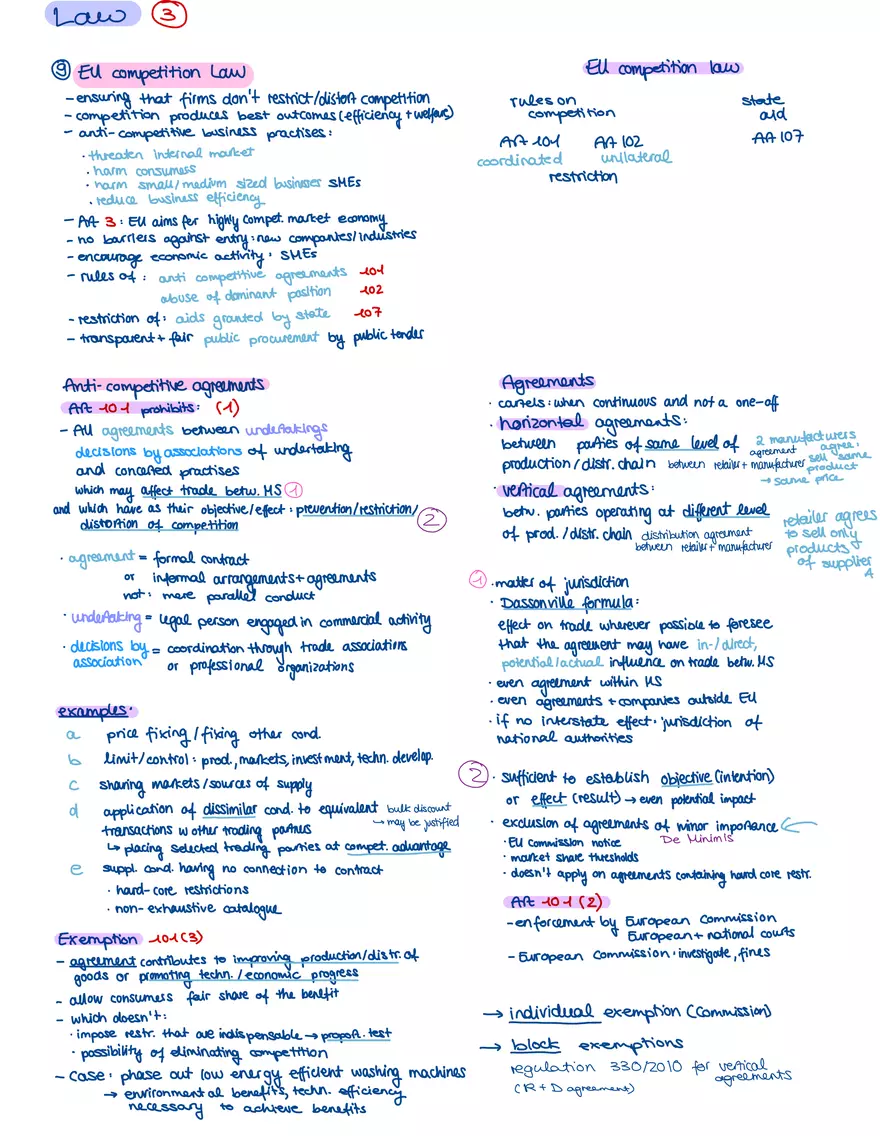 Law 3
⑨ EU competition Law
- ensuring that firms don't restrict/distort competition
- competition produces best outcomes (efficiency + welfare)
- anti-competitive business practises:
· threaten internal market
· harm consumers
· harm small/medium sized businesses SMEs
· reduce business efficiency
- Art 3: EU aims for highly compet. market economy
- no barriers against entry: new companies/industries
- encourage economic activity: SMEs
- rules of: anti competitive agreements -101
abuse of dominant position -102
- restriction of: aids granted by state -107
- transparent + fair public procurement by public tender
EU competition law
rules on competition
state aid
Art 101 Art 102
Art 107
coordinated unilateral
restriction
Anti-competitive agreements
Art 101 prohibits: (1)
- All agreements between undertakings
decisions by associations of undertaking
and concerted practises
which may affect trade betw. MS ①
and which have as their objective/effect: prevention/restriction/
distortion of competition ②
· agreement = formal contract
or informal arrangements + agreements
not: mere parallel conduct
· undertaking = legal person engaged in commercial activity
· decisions by = coordination through trade associations
association or professional organizations
examples:
a price fixing / fixing other cond.
b limit/control: prod., markets, investment, techn. develop.
c sharing markets/sources of supply
d application of dissimilar cond. to equivalent bulk discount
transactions w other trading parties → may be justified
↳ placing selected trading parties at compet. advantage
e suppl. cond. having no connection to contract
· hard-core restrictions
· non-exhaustive catalogue
Exemption 101(3)
- agreement contributes to improving production/distr. of
goods or promoting techn./economic progress
- allow consumers fair share of the benefit
- which doesn't:
· impose restr. that are indispensable → proport. test
· possibility of eliminating competition
- case: phase out low energy efficient washing machines
→ environmental benefits, techn. efficiency
necessary to achieve benefits
Agreements
· cartels: when continuous and not a one-off
· horizontal agreements:
between parties of same level of
production/distr. chain
agreement
between retailer + manufacturer
2 manufacturers
agree:
sell same
product
→ same price
· vertical agreements:
betw. parties operating at different level
of prod./distr. chain
distribution agreement
between retailer + manufacturer
retailer agrees
to sell only
products
of supplier
A
① · matter of jurisdiction
· Dassonville formula:
effect on trade wherever possible to foresee
that the agreement may have in-/direct,
potential/actual influence on trade betw. MS
· even agreement within MS
· even agreements + companies outside EU
· if no interstate effect: jurisdiction of
national authorities
② · sufficient to establish objective (intention)
or effect (result) → even potential impact
· exclusion of agreements of minor importance
· EU commission notice De Minimis
· market share thresholds
· doesn't apply on agreements containing hard core restr.
Art 101 (2)
- enforcement by European Commission
European + national courts
- European Commission: investigate, fines
→ individual exemption (Commission)
→ block exemptions
regulation 330/2010 for vertical
agreements
(R + D agreement)